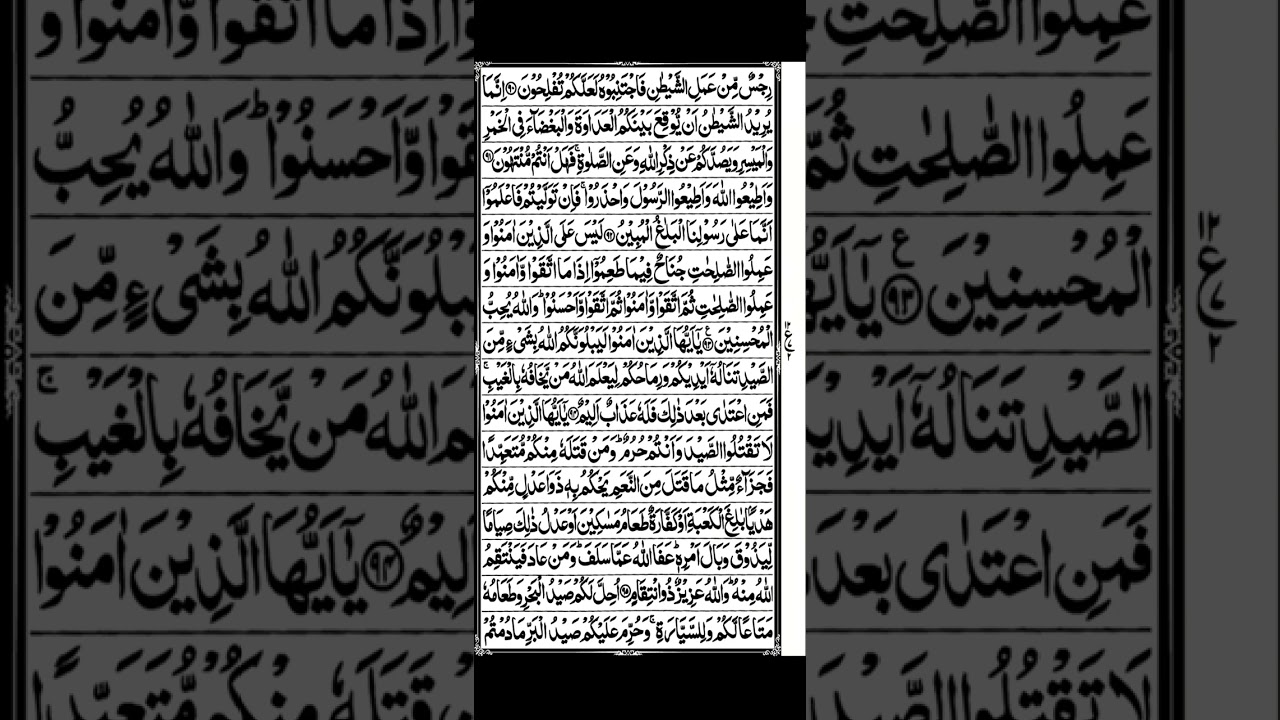 رِجْسٌ مِّنْ عَمَلِ الشَّيْطٰنِ فَاجْتَنِبُوْهُ لَعَلَّكُمْ تُفْلِحُوْنَ ۝٩٠ اِنَّمَا
يُرِيْدُ الشَّيْطٰنُ اَنْ يُّوْقِعَ بَيْنَكُمُ الْعَدَاوَةَ وَالْبَغْضَآءَ فِى الْخَمْرِ
وَالْمَيْسِرِ وَيَصُدَّكُمْ عَنْ ذِكْرِ اللّٰهِ وَعَنِ الصَّلٰوةِ ۚ فَهَلْ اَنْتُمْ مُّنْتَهُوْنَ ۝٩١
وَاَطِيْعُوا اللّٰهَ وَاَطِيْعُوا الرَّسُوْلَ وَاحْذَرُوْا ۚ فَاِنْ تَوَلَّيْتُمْ فَاعْلَمُوْٓا
اَنَّمَا عَلٰى رَسُوْلِنَا الْبَلٰغُ الْمُبِيْنُ ۝٩٢ لَيْسَ عَلَى الَّذِيْنَ اٰمَنُوْا وَ
عَمِلُوا الصّٰلِحٰتِ جُنَاحٌ فِيْمَا طَعِمُوْٓا اِذَا مَا اتَّقَوْا وَّاٰمَنُوْا وَ
عَمِلُوا الصّٰلِحٰتِ ثُمَّ اتَّقَوْا وَّاٰمَنُوْا ثُمَّ اتَّقَوْا وَّاَحْسَنُوْا ؕ وَاللّٰهُ يُحِبُّ
الْمُحْسِنِيْنَ ۝٩٣ ع يٰۤاَيُّهَا الَّذِيْنَ اٰمَنُوْا لَيَبْلُوَنَّكُمُ اللّٰهُ بِشَىْءٍ مِّنَ
الصَّيْدِ تَنَالُهٗۤ اَيْدِيْكُمْ وَرِمَاحُكُمْ لِيَعْلَمَ اللّٰهُ مَنْ يَّخَافُهٗ بِالْغَيْبِ ۚ
فَمَنِ اعْتَدٰى بَعْدَ ذٰلِكَ فَلَهٗ عَذَابٌ اَلِيْمٌ ۝٩٤ يٰۤاَيُّهَا الَّذِيْنَ اٰمَنُوْا
لَا تَقْتُلُوا الصَّيْدَ وَاَنْتُمْ حُرُمٌ ؕ وَمَنْ قَتَلَهٗ مِنْكُمْ مُّتَعَمِّدًا
فَجَزَآءٌ مِّثْلُ مَا قَتَلَ مِنَ النَّعَمِ يَحْكُمُ بِهٖ ذَوَا عَدْلٍ مِّنْكُمْ
هَدْيًۢا بٰلِغَ الْكَعْبَةِ اَوْ كَفَّارَةٌ طَعَامُ مَسٰكِيْنَ اَوْ عَدْلُ ذٰلِكَ صِيَامًا
لِّيَذُوْقَ وَبَالَ اَمْرِهٖ ؕ عَفَا اللّٰهُ عَمَّا سَلَفَ ؕ وَمَنْ عَادَ فَيَنْتَقِمُ
اللّٰهُ مِنْهُ ؕ وَاللّٰهُ عَزِيْزٌ ذُو انْتِقَامٍ ۝٩٥ اُحِلَّ لَكُمْ صَيْدُ الْبَحْرِ وَطَعَامُهٗ
مَتَاعًا لَّكُمْ وَلِلسَّيَّارَةِ ۚ وَحُرِّمَ عَلَيْكُمْ صَيْدُ الْبَرِّ مَا دُمْتُمْ
١٢
ع
٢